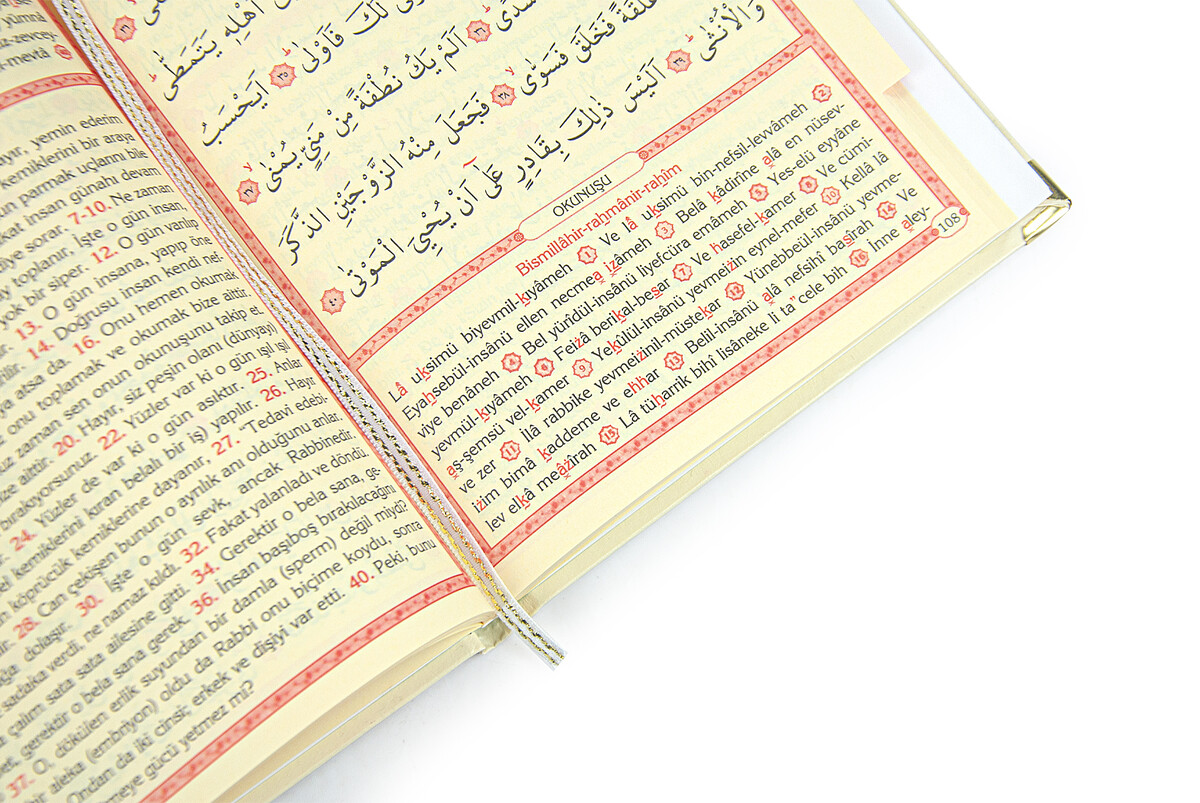 yümna
z-zevcey-
-mevtâ
ayır, yemin ederim
kemiklerini bir araya
un parmak uçlarını bile
kat insan günahı devam
diye sorar. 7-10. Ne zaman
toplanır, İşte o gün insan,
yok bir siper. 12. O gün varılıp
13. O gün insana, yapıp öne
14. Doğrusu insan kendi nef-
ya atsa da. 16. Onu hemen okumak
onu toplamak ve okumak bize aittir.
zaman sen onun okunuşunu takip et.
bize aittir. 20. Hayır, siz peşin olanı (dünyayı)
bırakıyorsunuz. 22. Yüzler var ki o gün ışıl ışıl
24. Yüzler de var ki o gün asıktır. 25. Anlar
bel kemiklerini kıran belalı bir iş) yapılır. 26. Hayır
köprücük kemiklerine dayanır, 27. "Tedavi edebi-
28. Can çekişen bunun o ayrılık anı olduğunu anlar.
dolaşır. 30. İşte o gün sevk, ancak Rabbinedir.
sadaka verdi, ne namaz kıldı. 32. Fakat yalanladı ve döndü.
çalım sata sata ailesine gitti. 34. Gerektir o bela sana, ge-
gerektir o bela sana gerek. 36. İnsan başıboş bırakılacağını
37. O, dökülen erlik suyundan bir damla (sperm) değil miydi?
bir aleka (embriyon) oldu da Rabbi onu biçime koydu, sonra
Ondan da iki cinsi; erkek ve dişiyi var etti. 40. Peki, bunu
meye gücü yetmez mi?
اَهْلِهٖ يَتَمَطّٰىۜ
لَكَ فَاَوْلٰىۜ ﴿٣٥﴾ اَيَحْسَبُ
سُدًىۜ ﴿٣٦﴾ اَلَمْ يَكُ نُطْفَةً مِنْ مَنِيٍّ يُمْنٰىۙ ﴿٣٧﴾
فَخَلَقَ فَسَوّٰىۙ ﴿٣٨﴾ فَجَعَلَ مِنْهُ الزَّوْجَيْنِ الذَّكَرَ
وَالْاُنْثٰىۜ ﴿٣٩﴾ اَلَيْسَ ذٰلِكَ بِقَادِرٍ عَلٰٓى اَنْ يُحْيِيَ الْمَوْتٰى ﴿٤٠﴾
OKUNUŞU
Bismillâhir-rahmânir-rahîm
Lâ uksimü biyevmil-kıyâmeh 1 Ve lâ uksimü bin-nefsil-levvâmeh 2
Eyahsebül-insânü ellen necmea izâmeh 3 Belâ kâdirîne alâ en nüsev-
viye benâneh 4 Bel yürîdül-insânü liyefcüra emâmeh 5 Yes-elü eyyâne
yevmül-kıyâmeh 6 Feizâ berikal-besar 7 Ve hasefel-kamer 8 Ve cümi-
aş-şemsü vel-kamer 9 Yekûlül-insânü yevmeizin eynel-mefer 10 Kellâ lâ
ve zer 11 İlâ rabbike yevmeizinil-müstekar 12 Yünebbeül-insânü yevme-
izim bimâ kaddeme ve ehhar 13 Belil-insânü alâ nefsihî basîrah 14 Ve
lev elkâ meâzîrah 15 Lâ tüharrik bihî lisâneke li ta" cele bih 16 İnne aley-
108